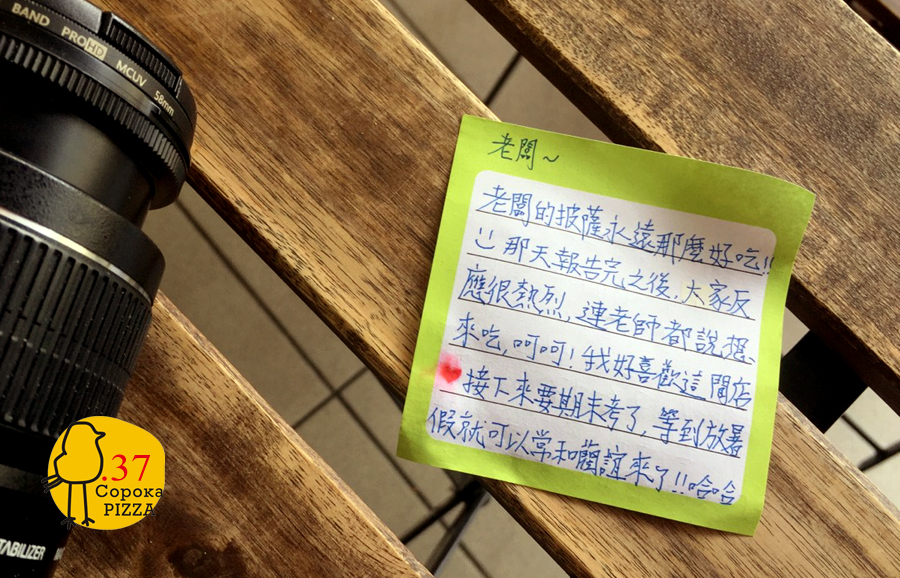 BAND PROHD MCUV 58mm
老闆~
老闆的披薩永遠那麼好吃!!
那天報告完之後,大家反
應很熱烈,連老師都說想
來吃,呵呵!我好喜歡這間店
接下來要期末考了,等到放暑
假就可以常和蘭誼來了!!哈哈
.37
Copoka
PIZZA
STABILIZER